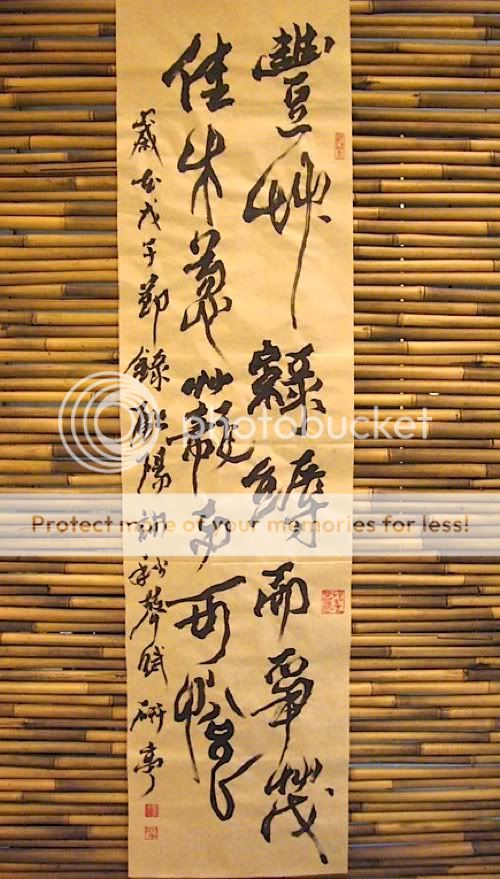 豐草綠縟而爭茂
佳木葱蘢而可悅
歲在戊子節錄歐陽秋聲賦 研亭
photobucket
Protect more of your memories for less!